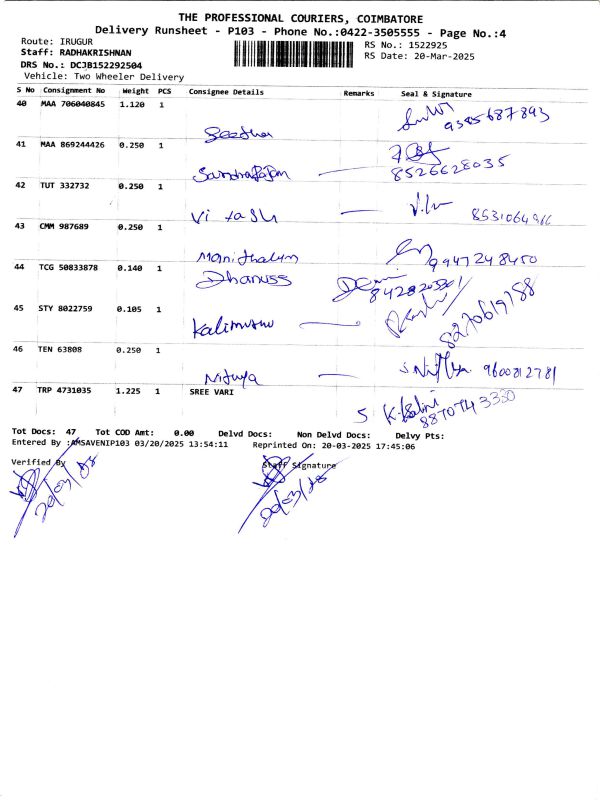 THE PROFESSIONAL COURIERS, COIMBATORE
Delivery Runsheet - P103 - Phone No.:0422-3505555 - Page No.:4
Route: IRUGUR
Staff: RADHAKRISHNAN
DRS No.: DCJB152292504
Vehicle: Two Wheeler Delivery
RS No.: 1522925
RS Date: 20-Mar-2025
S No Consignment No Weight PCS Consignee Details Remarks Seal & Signature
40 MAA 706040845 1.120 1
Seetha 9385687893
41 MAA 869244426 0.250 1
8526628035
42 TUT 332732 0.250 1
8531064966
43 CMM 987689 0.250 1
9947248450
44 TCG 50833878 0.140 1
Dhanuss
45 STY 8022759 0.105 1
Kalimuthu 8270619788
46 TEN 63808 0.250 1
Nithya 9600812781
47 TRP 4731035 1.225 1 SREE VARI
8870743330
Tot Docs: 47 Tot COD Amt: 0.00 Delvd Docs: Non Delvd Docs: Delvy Pts:
Entered By :AMSAVENIP103 03/20/2025 13:54:11 Reprinted On: 20-03-2025 17:45:06
Verified By Staff Signature
20/03/25 20/03/25